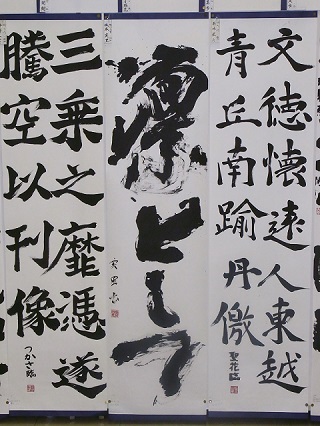 文徳懐遠人東越
青丘南踰丹徼
聖花臨
凛として
三乗之靡馮遂
騰空以刊像
つかさ臨